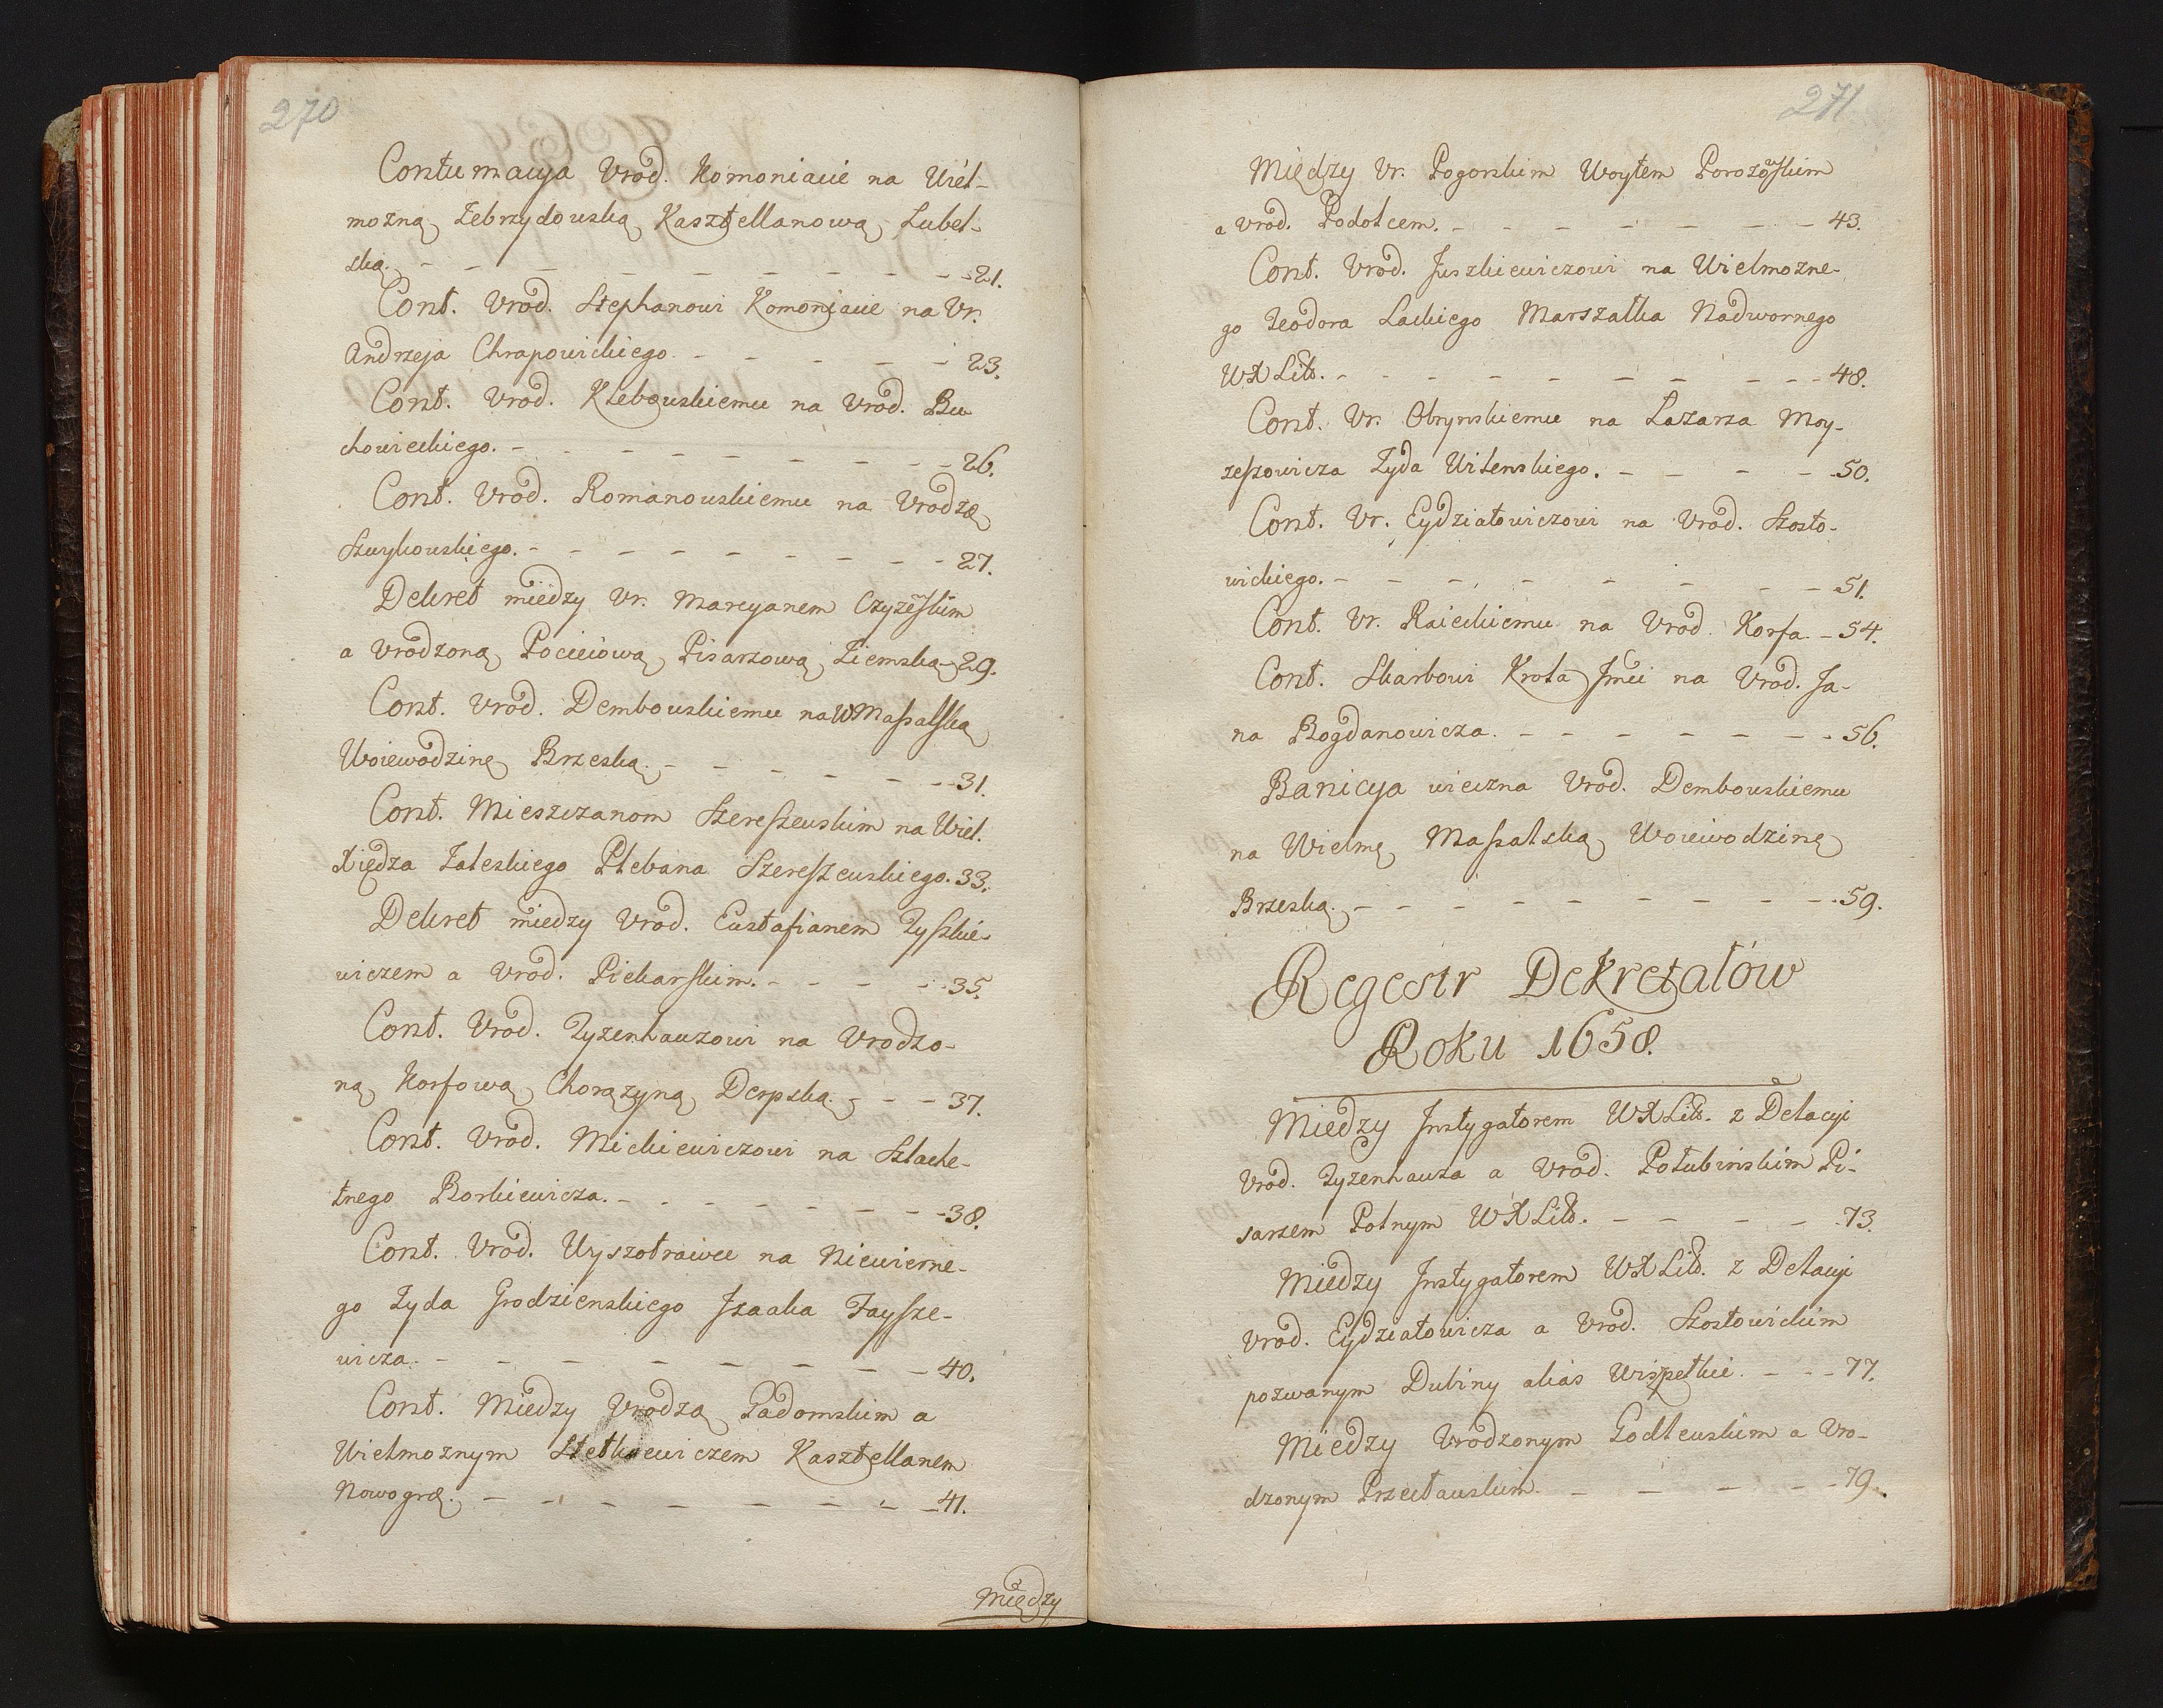 270
Contumacya Vrod. Komoniacie na Wiel-
możną Zebrzydowską Kasztellanową Lubel-
ską. - - - - - - - - - - 21.
Cont. Vrod. Stephanowi Komoniacie na Vr.
Andrzeja Chrapowickiego. - - - - - 23.
Cont. Vrod. Klebowskiemu na Vrod. Bu
chowieckiego. - - - - - - - - 26.
Cont. Vrod. Romanowskiemu na Vrodzo
Szuykowskiego. - - - - - - - - 27.
Dekret między Vr. Marcyanem Czyżewskim
a Vrodzoną Pocieiową Pisarzową Ziemską 29.
Cont. Vrod. Dembowskiemu na W Massalską
Woiewodzinę Brzeską. - - - - - - 31.
Cont. Mieszczanom Szereszewskim na Wiel.
Xiędza Zaleskiego Plebana Szereszewskiego. 33.
Dekret między Vrod. Eustafianem Tyszkie-
wiczem a Vrod. Piekarskim. - - - - 35.
Cont. Vrod. Tyzenhauzowi na Vrodzo-
ną Korfową Chorążyną Derpską. - - - 37.
Cont. Vrod. Mickiewiczowi na Szlache-
tnego Borkiewicza. - - - - - - - 38.
Cont. Vrod. Wyszotrawce na Niewierne-
go Żyda Grodzienskiego Jzaaka Faysze-
wicza. - - - - - - - - 40.
Cont. Między Vrodzo Padomskim a
Wielmożnym Stetkiewiczem Kasztellanem
Nowogrod. - - - - - - - - 41.
Między
271
Między Vr. Pogorskim Woytem Porozowskim
a Vrod. Podolcem. - - - - - - - 43.
Cont. Vrod. Juszkiewiczowi na Wielmożne-
go Teodora Lackiego Marszałka Nadwornego
WXLitt. - - - - - - - - - 48.
Cont. Vr. Obrynskiemu na Łazarza Moy-
zeszowicza Żyda Wilenskiego. - - - - 50.
Cont. Vr. Eydziatowiczowi na Vrod. Szosto-
wickiego. - - - - - - - - 51.
Cont. Vr. Raieckiemu na Vrod. Korfa - 54.
Cont. Skarbowi Krola Jmći na Vrod. Ja-
na Bogdanowicza. - - - - - - - 56.
Banicya wieczna Vrod. Dembowskiemu
na Wielmę Massalską Woiewodzinę
Brzeską. - - - - - - - - - 59.
Regestr Dekretałów
Roku 1658.
Między Jnstygatorem WXLitt. z Delacyi
Vrod. Tyzenhauza a Vrod. Połubińskim Pi-
sarzem Polnym WXLitt. - - - - - 73.
Między Jnstygatorem WXLitt. z Delacyi
Vrod. Eydziatowicza a Vrod. Szostowickim
pozwanym Dubiny alias Wiszpetkie. - - - 77.
Między Vrodzonym Godlewskim a Vro-
dzonym Przecławskim. - - - - - 79.